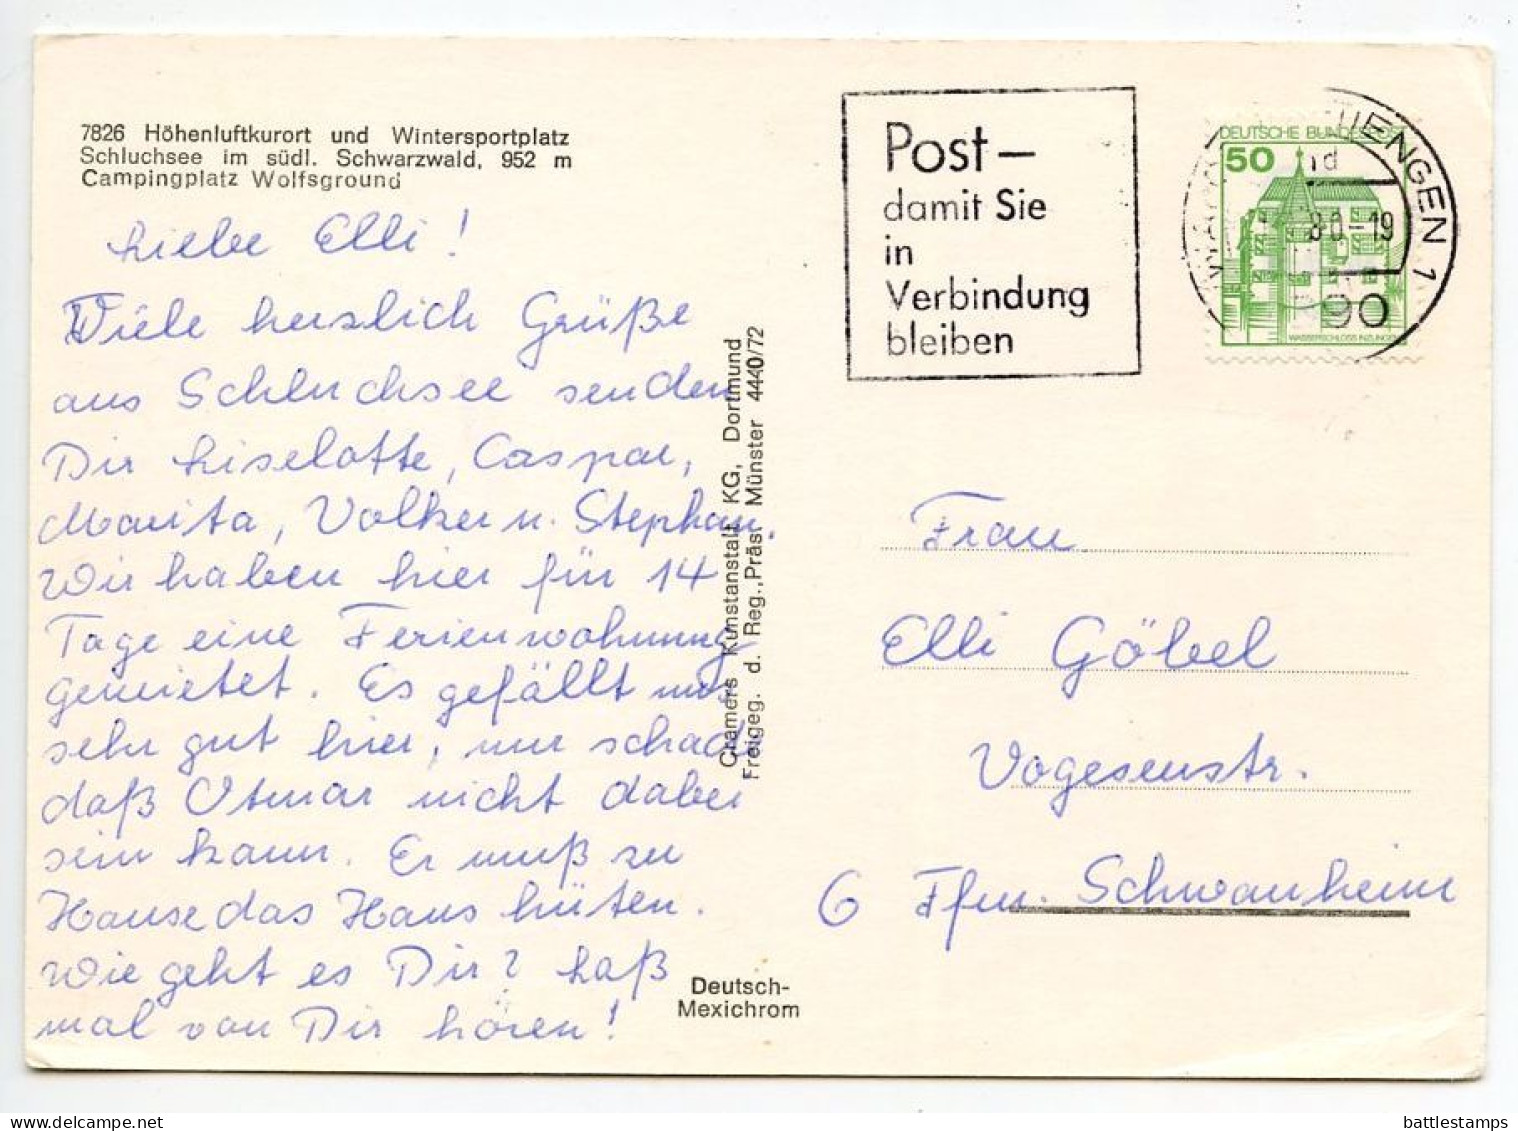 7826 Höhenluftkurort und Wintersportplatz
Schluchsee im südl. Schwarzwald, 952 m
Campingplatz Wolfsground
Liebe Elli!
Viele herzlich Grüße
aus Schluchsee senden
Dir Liselotte, Caspar,
Marita, Volker u. Stephan.
Wir haben hier für 14
Tage eine Ferienwohnung
gemietet. Es gefällt uns
sehr gut hier, nur schade
daß Otmar nicht dabei
sein kann. Er muß zu
Hause das Haus hüten.
Wie geht es Dir? Laß
mal von Dir hören!
Cramers Kunstanstalt KG, Dortmund
Freigeg. d. Reg.-Präs. Münster 4440/72
Deutsch-
Mexichrom
Post–
damit Sie
in
Verbindung
bleiben
DEUTSCHE BUNDESPOST
50
TIENGEN 1
80-19
WASSERSCHLOSS INZLINGEN
Frau
Elli Göbel
Vogesenstr.
6 Ffm. Schwanheim
delcampe.net
battlestamps